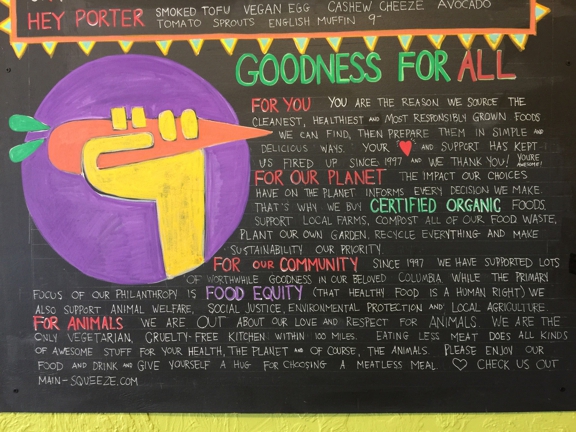 HEY PORTER SMOKED TOFU VEGAN EGG CASHEW CHEEZE AVOCADO
TOMATO SPROUTS ENGLISH MUFFIN 9-
GOODNESS FOR ALL
FOR YOU YOU ARE THE REASON WE SOURCE THE
CLEANEST, HEALTHIEST AND MOST RESPONSIBLY GROWN FOODS
WE CAN FIND, THEN PREPARE THEM IN SIMPLE AND
DELICIOUS WAYS. YOUR ♥ AND SUPPORT HAS KEPT
US FIRED UP SINCE 1997 AND WE THANK YOU! YOU'RE AWESOME!
FOR OUR PLANET THE IMPACT OUR CHOICES
HAVE ON THE PLANET INFORMS EVERY DECISION WE MAKE.
THAT'S WHY WE BUY CERTIFIED ORGANIC FOODS,
SUPPORT LOCAL FARMS, COMPOST ALL OF OUR FOOD WASTE,
PLANT OUR OWN GARDEN, RECYCLE EVERYTHING AND MAKE
SUSTAINABILITY OUR PRIORITY.
FOR OUR COMMUNITY SINCE 1997 WE HAVE SUPPORTED LOTS
OF WORTHWHILE GOODNESS IN OUR BELOVED COLUMBIA. WHILE THE PRIMARY
FOCUS OF OUR PHILANTHROPY IS FOOD EQUITY (THAT HEALTHY FOOD IS A HUMAN RIGHT) WE
ALSO SUPPORT ANIMAL WELFARE, SOCIAL JUSTICE, ENVIRONMENTAL PROTECTION AND LOCAL AGRICULTURE.
FOR ANIMALS WE ARE OUT ABOUT OUR LOVE AND RESPECT FOR ANIMALS. WE ARE THE
ONLY VEGETARIAN, CRUELTY-FREE KITCHEN WITHIN 100 MILES. EATING LESS MEAT DOES ALL KINDS
OF AWESOME STUFF FOR YOUR HEALTH, THE PLANET AND OF COURSE, THE ANIMALS. PLEASE ENJOY OUR
FOOD AND DRINK AND GIVE YOURSELF A HUG FOR CHOOSING A MEATLESS MEAL ♡ CHECK US OUT
MAIN-SQUEEZE.COM